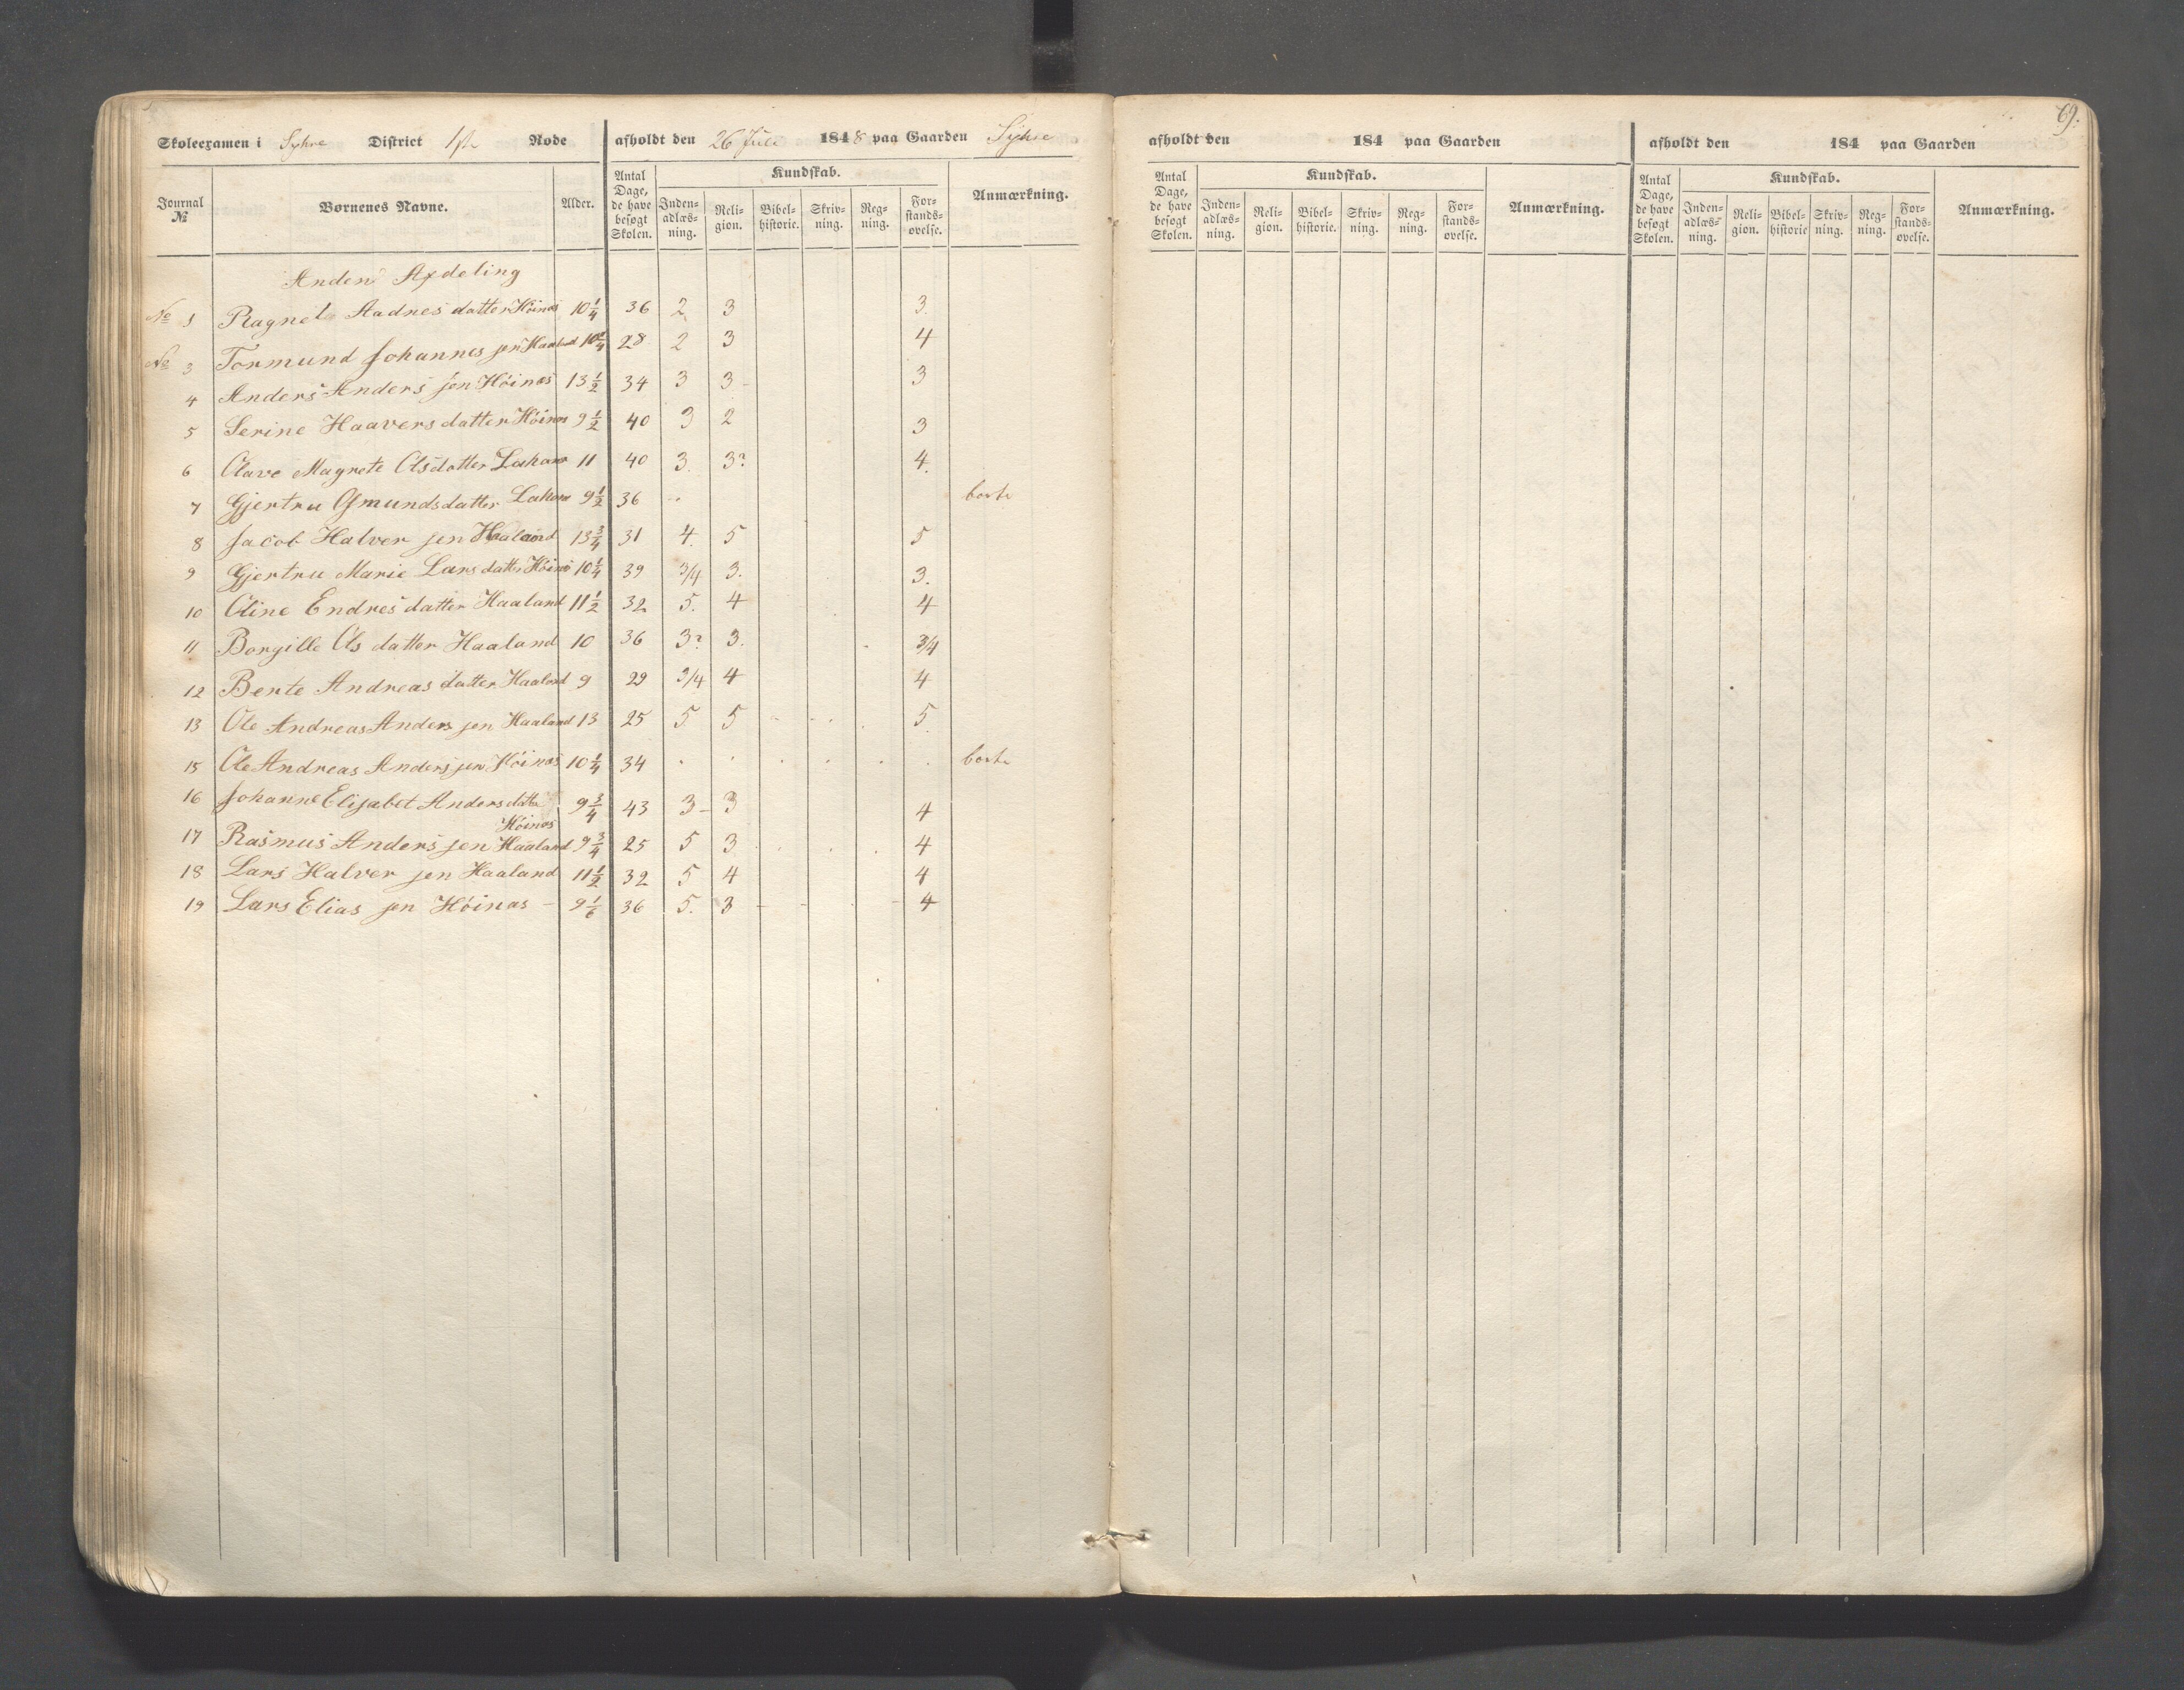 69.
Skoleexamen i Syhre District 1ste Rode afholdt den 26 Juli 1848 paa Gaarden Syhre
Journal № Børnenes Navne. Alder. Antal Dage, de have besøgt Skolen. Kundskab. Indenadlæsning. Religion. Bibelhistorie. Skrivning. Regning. Forstandsøvelse. Anmærkning.
Anden Afdeling
№ 1 Ragnela Aadnesdatter Höinas 10 1/4 36 2 3 3.
№ 3 Tormund Johannes sen Haaland 28 2 3 4
4 Anders Anders sen Höinas 13 1/2 34 3 3 - 3
5 Serine Haavers datter Höinas 9 1/2 40 3 2 3
6 Olave Magrete Olsdatter 11 40 3. 3? 4.
7 Gjertru Osmundsdatter 9 1/2 36 borte
8 Jacob Halver sen Haaland 13 3/4 31 4. 5 5
9 Gjertru Marie Lars datter Höinas 10 1/4 39 3/4 3. 3.
10 Oline Endres datter Haaland 11 1/2 32 5. 4 4
11 Borgille Ols datter Haaland 10 36 3? 3. 3/4
12 Berte Andreas datter Haaland 9 29 3/4 4 4
13 Ole Andreas Anders sen Haaland 13 25 5 5 5.
15 Ole Andreas Anders sen Höinas 10 1/4 34 borte
16 Johanne Elisabet Anders datter 9 3/4 43 3 - 3 4
Höinas
17 Rasmus Anders sen Haaland 9 3/4 25 5 3 4
18 Lars Halver sen Haaland 11 1/2 32 5 4 4
19 Lars Elias sen Höinas - 9 1/6 36 5. 3 - - - 4
afholdt den 184 paa Gaarden
Antal Dage, de have besøgt Skolen. Kundskab. Indenadlæsning. Religion. Bibelhistorie. Skrivning. Regning. Forstandsøvelse. Anmærkning.
afholdt den 184 paa Gaarden
Antal Dage, de have besøgt Skolen. Kundskab. Indenadlæsning. Religion. Bibelhistorie Skrivning. Regning. Forstandsøvelse. Anmærkning.